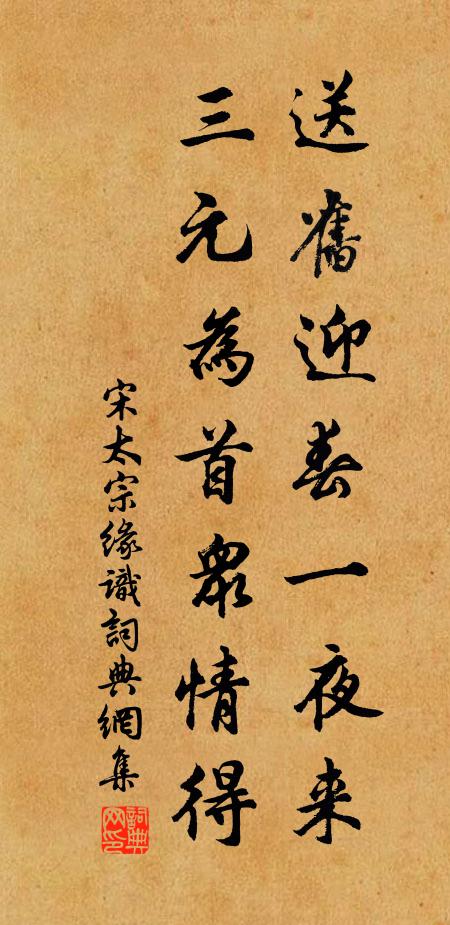 送舊迎春一夜来
三元為首衆情得
宋太宗緣識詞典網集
詞典網印